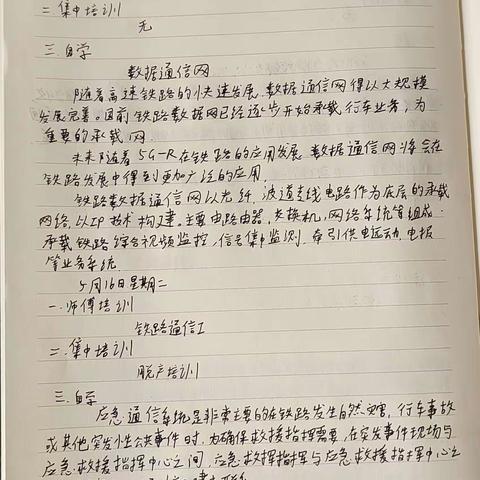 二.集中培训
无
三.自学
数据通信网
随着高速铁路的快速发展,数据通信网得以大规模
发展完善。目前铁路数据网已经逐步开始承载行车业务,为
重要的承载网.
未来随着5G-R在铁路的应用发展,数据通信网将会在
铁路发展中得到更加广泛的应用.
铁路数据通信网以光纤,波道专线电路作为底层的承载
网络,以IP技术构建.主要由路由器,交换机,网络系统等组成:
承载铁路综合视频监控,信号集中监测,牵引供电远动,电报
等业务系统.
5月16日星期二
一.师傅培训
铁路通信工
二.集中培训
脱产培训
三.自学
应急通信系统是非常主要的在铁路发生自然灾害,行车事故
或其他突发性公共事件时,为确保救援指挥需要,在突发事件现场与
应急救援指挥中心之间,应急救援指挥与应急救援指挥中心之